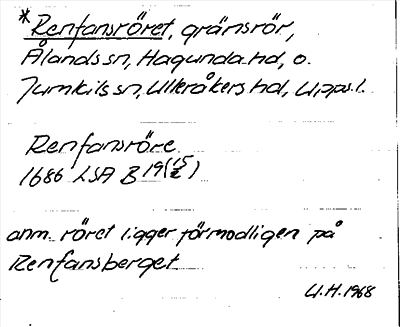 *Renfansröret, gränsrör,
Ålands sn, Hagunda hd, o.
Jumkils sn, Ulleråkers hd, Upps. l.
Renfansröre
1686 LSA B 19 (15/2)
anm. röret ligger förmodligen på
Renfansberget
U.H. 1968